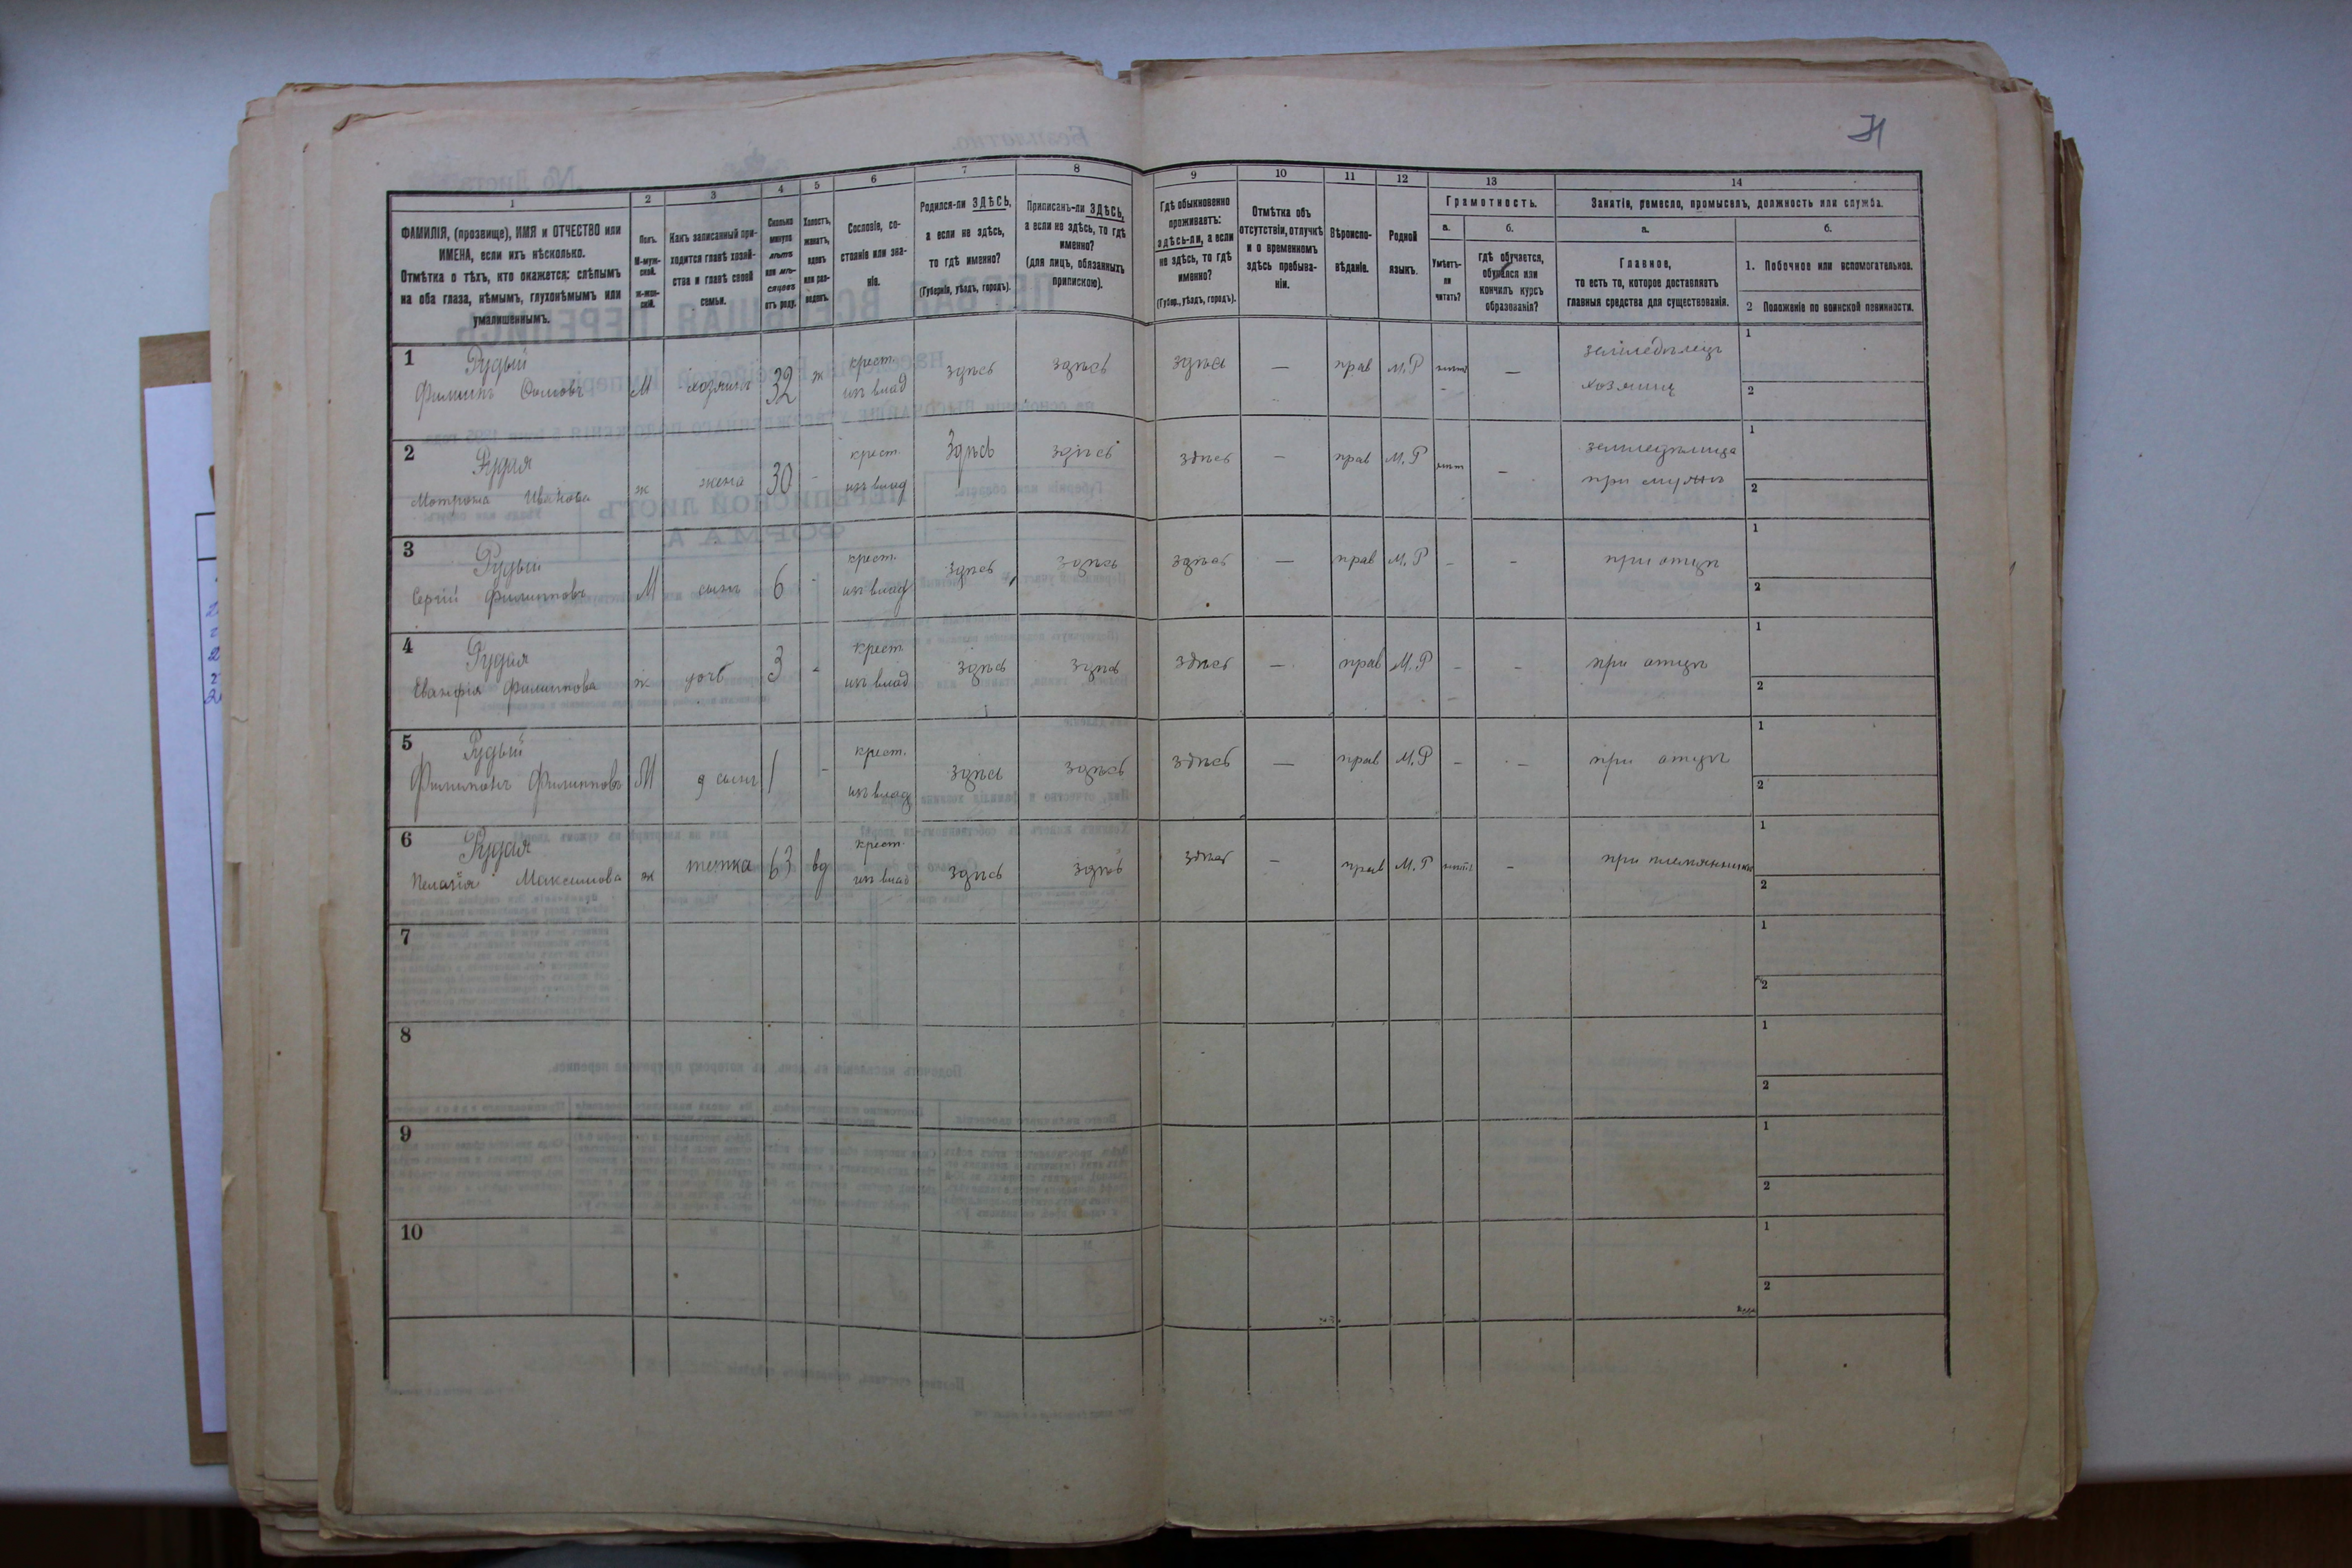 31
1 2 3 4 5 6 7 8 9 10 11 12 13 14
ФАМИЛІЯ, (прозвище), ИМЯ и ОТЧЕСТВО или ИМЕНА, если ихъ нѣсколько.
Отмѣтка о тѣхъ, кто окажется: слѣпымъ на оба глаза, нѣмымъ, глухонѣмымъ или умалишеннымъ.
Полъ. М-мужской. Ж-женскій.
Какъ записанный приходится главѣ хозяйства и главѣ своей семьи.
Сколько минуло лѣтъ или мѣсяцевъ отъ роду.
Холостъ, женатъ, вдовъ или разведенъ.
Сословіе, состояніе или званіе.
Родился-ли ЗДѢСЬ, а если не здѣсь, то гдѣ именно?
(Губернія, уѣздъ, городъ).
Приписанъ-ли ЗДѢСЬ, а если не здѣсь, то гдѣ именно?
(для лицъ, обязанныхъ припискою).
Гдѣ обыкновенно проживаетъ: здѣсь-ли, а если не здѣсь, то гдѣ именно?
(Губер., уѣздъ, городъ).
Отмѣтка объ отсутствіи, отлучкѣ и о временномъ здѣсь пребываніи.
Вѣроисповѣданіе.
Родной языкъ.
Грамотность.
а. Умѣетъ-ли читать?
б. гдѣ обучается, обучался или кончилъ курсъ образованія?
Занятіе, ремесло, промыселъ, должность или служба.
а. Главное, то есть то, которое доставляетъ главныя средства для существованія.
б. 1. Побочное или вспомогательное.
2 Положеніе по воинской повинности.
1 Рудый крест. земледѣлецъ 1
Филипъ М хозяинъ 32 ж из влад здѣсь здѣсь здѣсь — прав М.Р нѣтъ — хозяинъ 2
2 Рудая крест. земледѣлица 1
Мотрона Иванова ж жена 30 - из влад здѣсь здѣсь здѣсь — прав М.Р нѣт — при мужѣ 2
3 Рудый крест. 1
Сергій Филипповъ М сынъ 6 - из влад здѣсь здѣсь здѣсь — прав М.Р - - при отцѣ 2
4 Рудая крест. 1
Филиппова ж дочь 3 - из влад здѣсь здѣсь здѣсь — прав М.Р - - при отцѣ 2
5 Рудый крест. 1
Филимонъ Филипповъ М сынъ 1 - из влад здѣсь здѣсь здѣсь — прав М.Р - - при отцѣ 2
6 Рудая крест. 1
Пелагія Максимова ж тетка 63 вд из влад здѣсь здѣсь здѣсь — прав М.Р нѣтъ - при племяннике 2
7 1
2
8 1
2
9 1
2
10 1
2